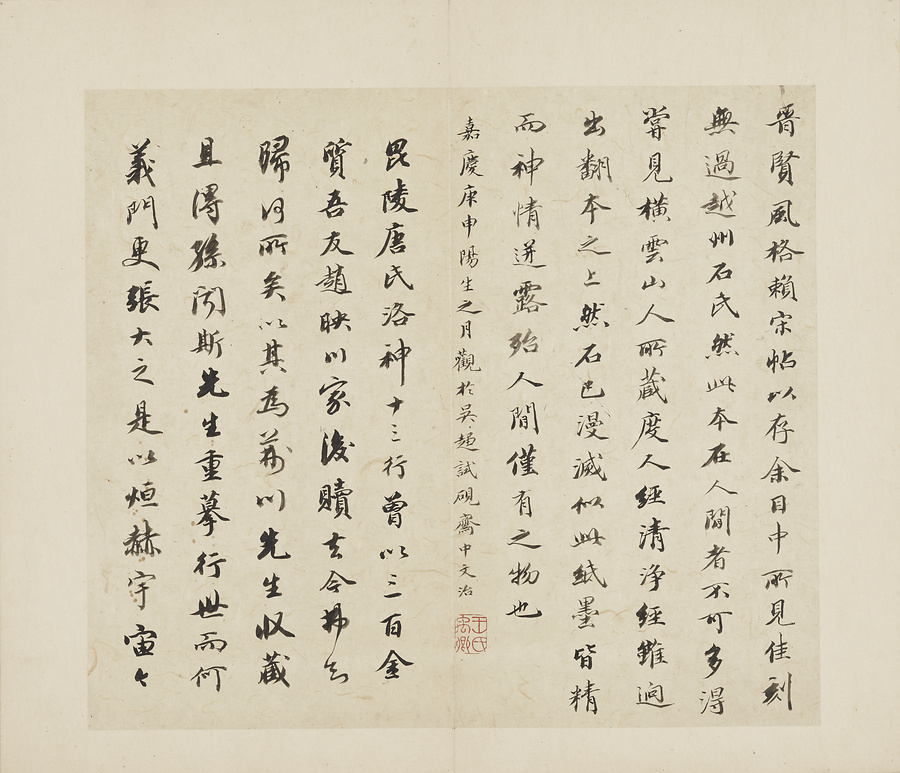 晉賢風格賴宋帖以存余目中所見佳刻
無過越州石氏然此本在人間者不可多得
嘗見橫雲山人所藏度人經清淨經雖迥
出翻本之上然石已漫滅似此紙墨皆精
而神情迸露殆人間僅有之物也
嘉慶庚申陽生之月觀於吳趨試硯齋中文治
王氏禹卿
毘陵唐氏洛神十三行曾以三百金
質吾友趙映川家後贖去今弗知
歸何所矣以其為荊川先生收藏
且得孫聞斯先生重摹行世而何
義門更張大之是以烜赫宇宙々